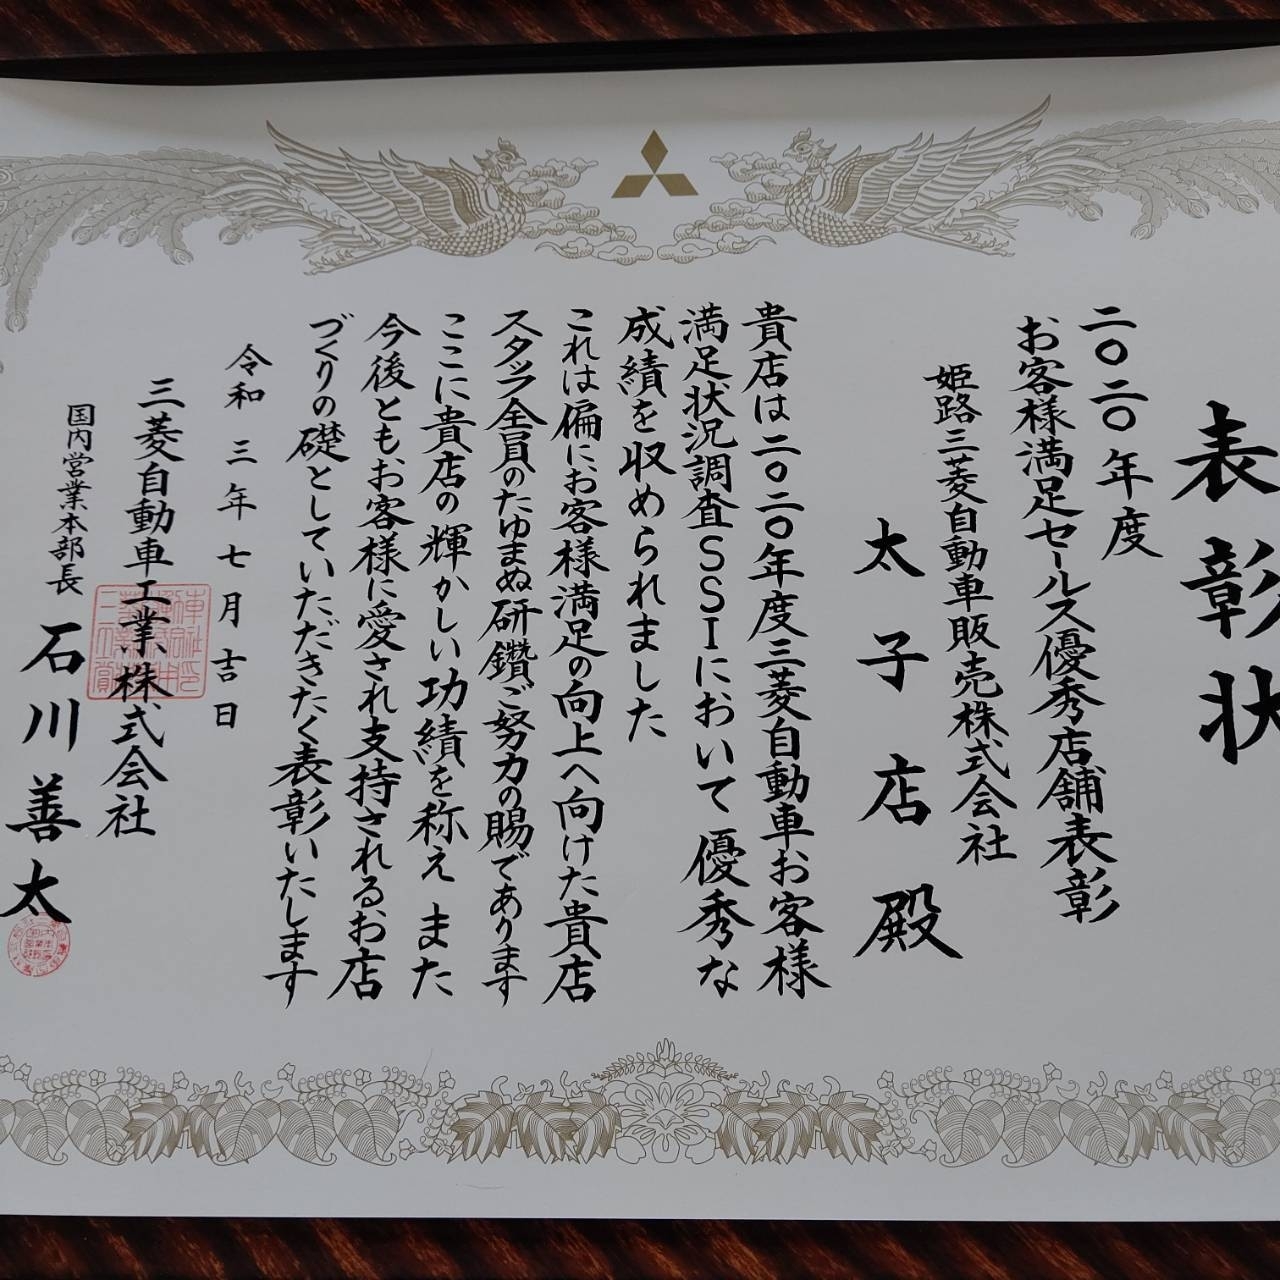 表彰状
二〇二〇年度
お客様満足セールス優秀店舗表彰
姫路三菱自動車販売株式会社
太子店殿
貴店は二〇二〇年度三菱自動車お客様
満足状況調査SSIにおいて優秀な
成績を収められました
これは偏にお客様満足の向上へ向けた貴店
スタッフ全員のたゆまぬ研鑽ご努力の賜であります
ここに貴店の輝かしい功績を称え また
今後ともお客様に愛され支持されるお店
づくりの礎としていただきたく表彰いたします
令和三年七月吉日
三菱自動車工業株式会社
国内営業本部長 石川善太